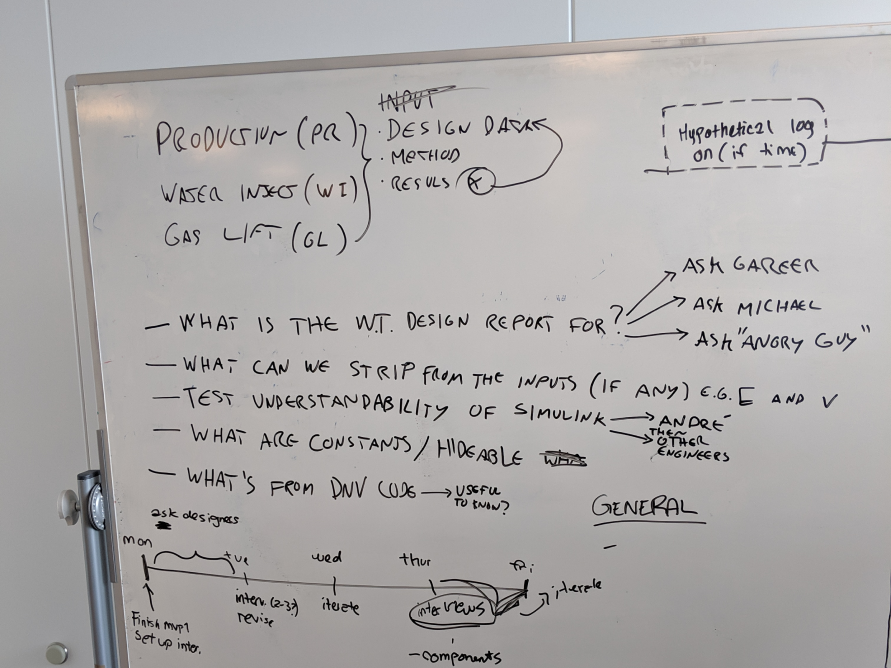 INPUT
PRODUCTION (PR)
· DESIGN DATA
· METHOD
WATER INJECT (WI)
· RESULS (x)
GAS LIFT (GL)
Hypothetical log
on (if time)
— WHAT IS THE W.T. DESIGN REPORT FOR?
ASK GAREER
ASK MICHAEL
ASK "ANGRY GUY"
— WHAT CAN WE STRIP FROM THE INPUTS (IF ANY) E.G. E AND V
— TEST UNDERSTANDABILITY OF SIMULINK → ANDRÉ
THEN
OTHER
ENGINEERS
— WHAT ARE CONSTANTS / HIDEABLE
— WHAT'S FROM DNV CODE → USEFUL
TO KNOW?
GENERAL
–
ask designers
mon
tue
wed
thur
fri
Finish mvp1
Set up inter.
interv. (2-3?)
revise
iterate
interviews
iterate
- components